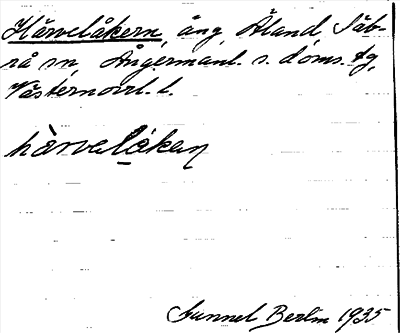 Härvelåkern, äng, Åland, Säb-
rå sn, Ångermanl. s. doms. tg,
Västernorrl. l.
hàrvelåkeṇ
Gunnel Berlin 1935